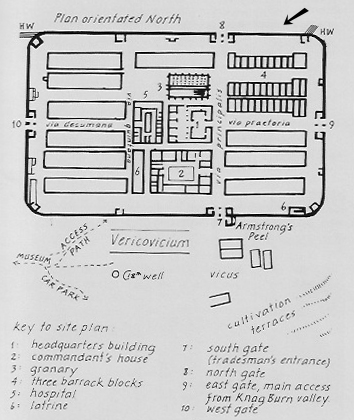 Plan orientated North
HW
8
HW
4
3
5
via quintana
via principalis
10
via decumana
via praetoria
9
6
2
6
7
Armstrong's
Peel
ACCESS
PATH
Vericovicium
MUSEUM
18th well
VICUS
CAR PARK
cultivation
terraces
key to site plan:
1: headquarters building
2: commandant's house
3: granary
4: three barrack blocks
5: hospital
6: latrine
7: south gate
(tradesman's entrance)
8: north gate
9: east gate, main access
from Knag Burn valley.
10: west gate